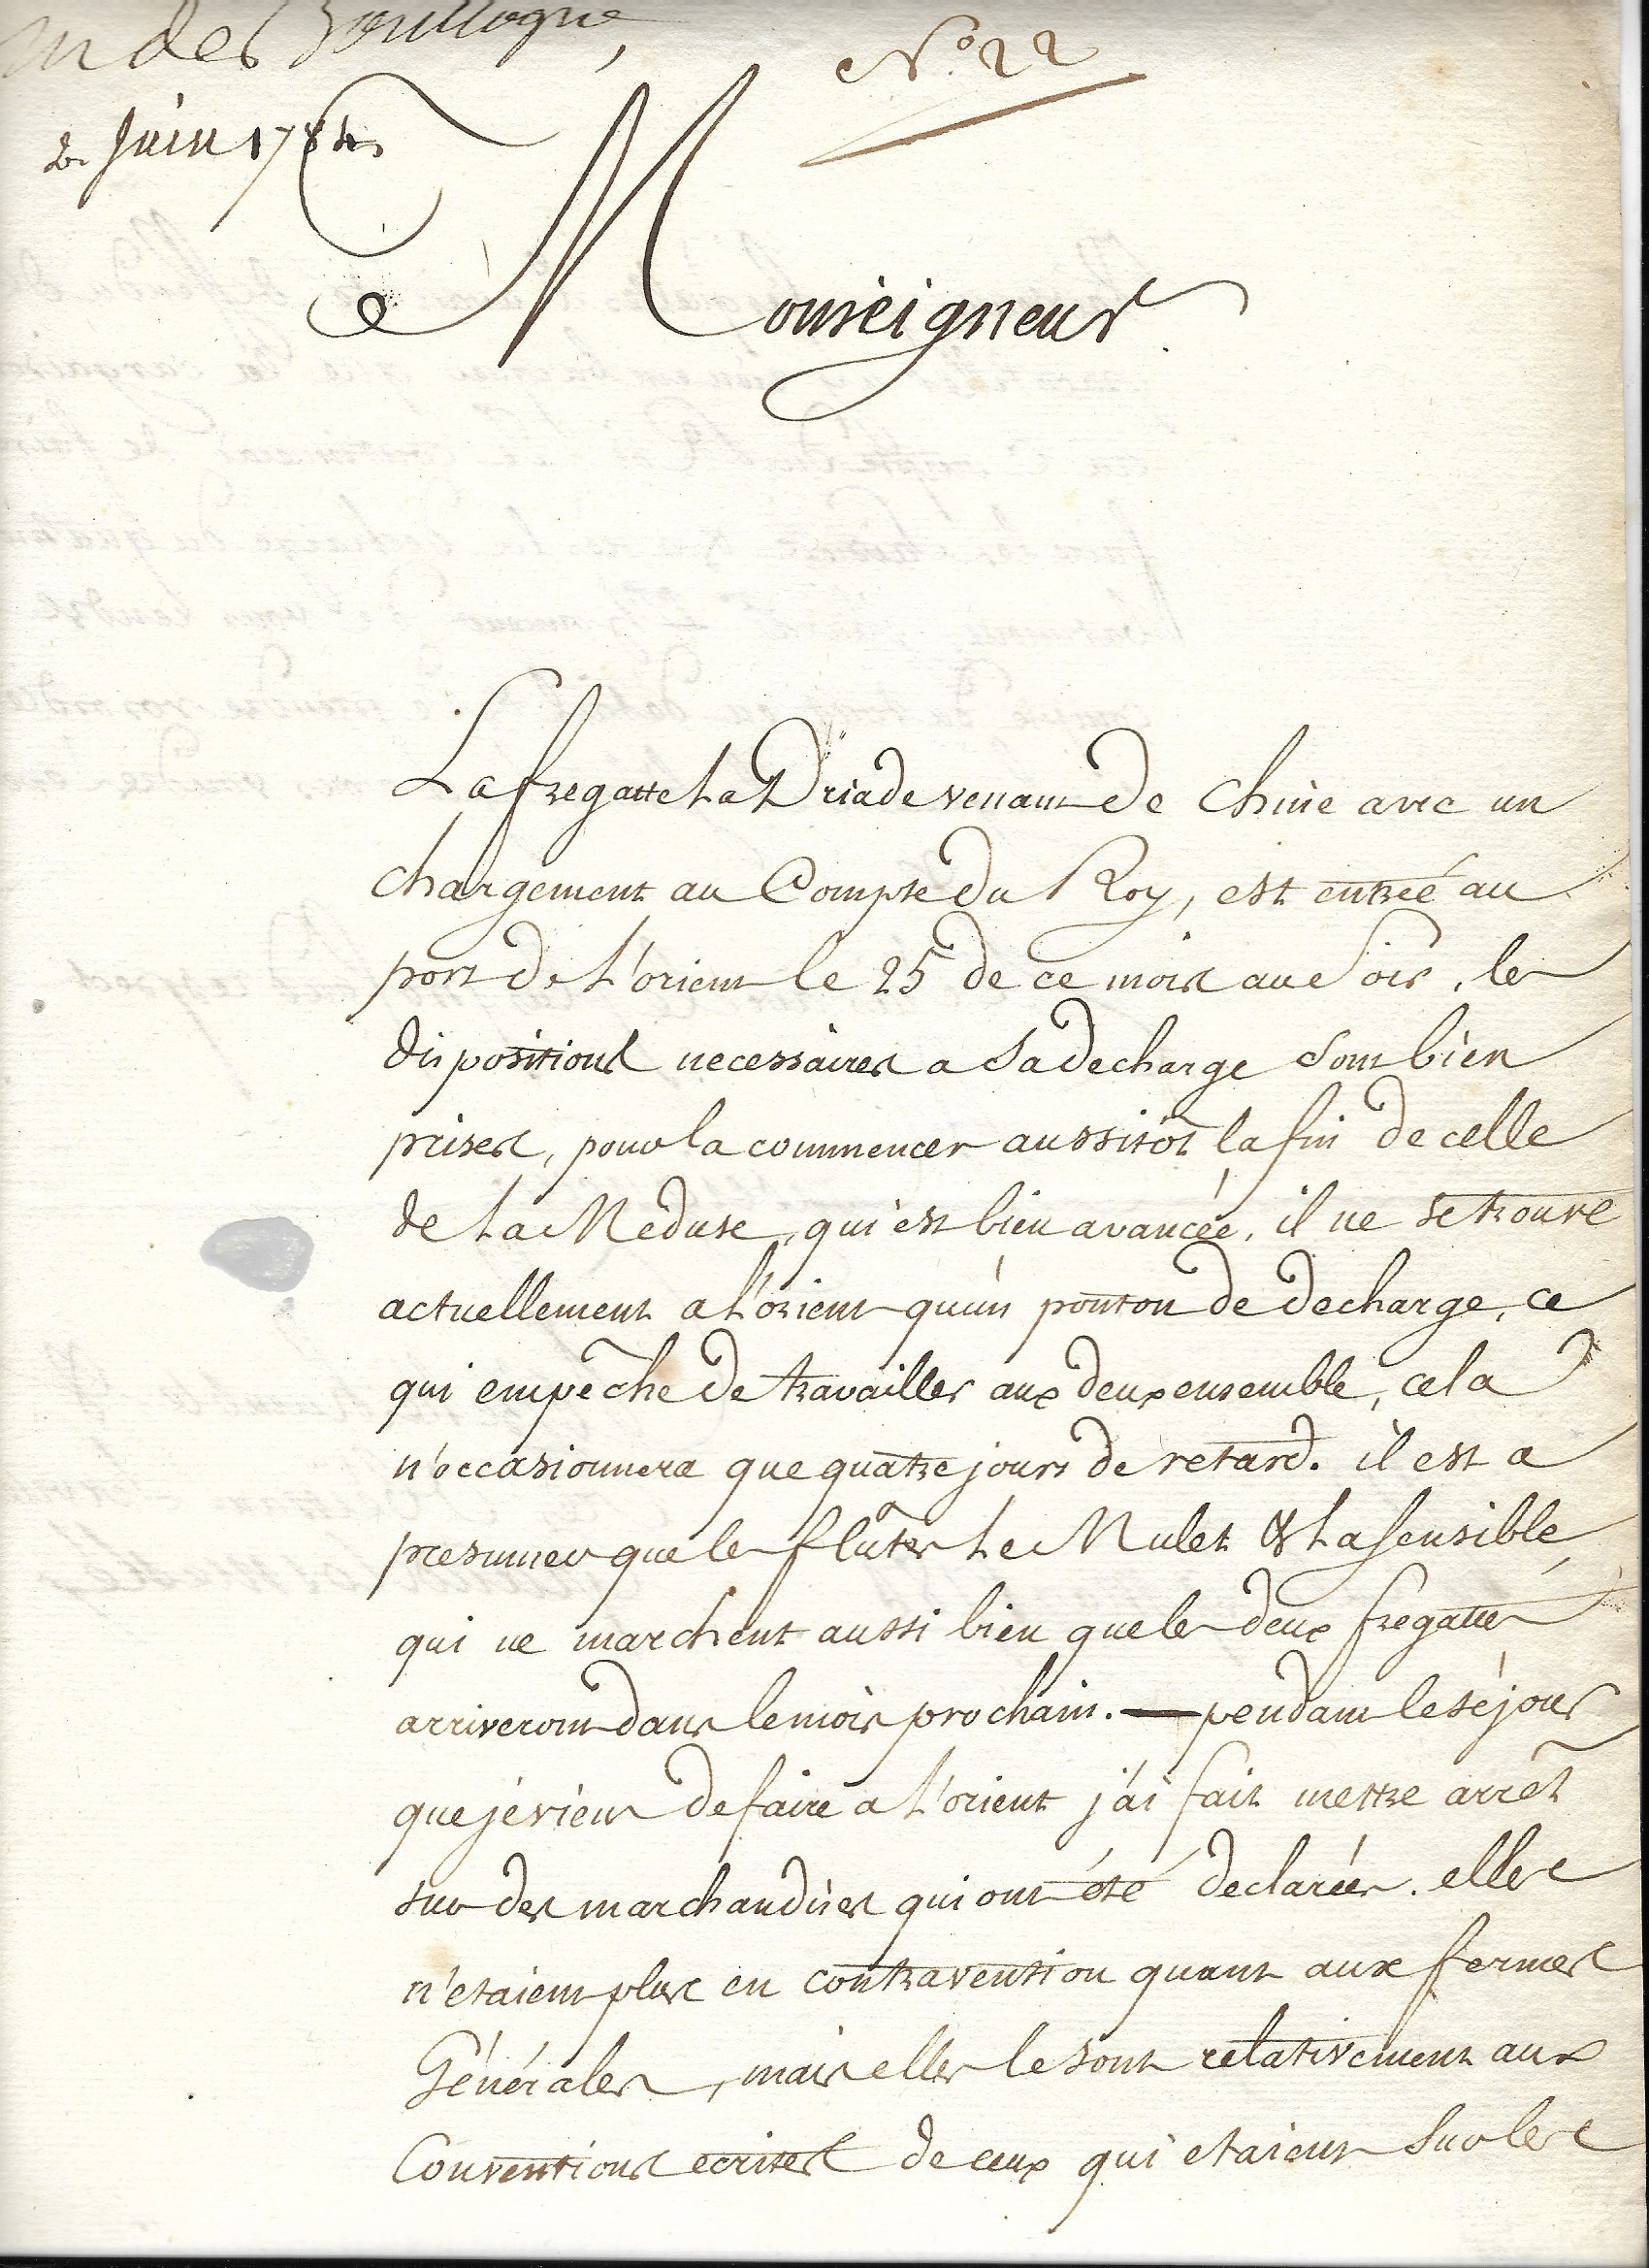 m des Boullogne,
N.° 22
2. Juin 1784
Monseigneur
La fregatte La Driade venant De Chine avec un
chargement au Compte du Roy, est entreé au
port De L'orient le 25 de ce mois au Soir, les
dispositions necessaires a Sa decharge Sont bien
prises, pour la commencer aussitôt la fin de celle
de La Meduse, qui est bien avancée, il ne se trouve
actuellement a L'orient qu'un ponton de decharge, ce
qui empêche de travailler aux deux ensemble, cela
n'occasionnera que quatre jours de retard. il est a
presumer que les flûtes Le Mulet & La Sensible
qui ne marchent aussi bien que les deux fregattes
arriveront dans le mois prochain. — pendant le séjour
que je viens de faire a L'orient j'ai fait mettre arrêt
sur des marchandises qui ont été declarées. elles
n'etaient plus en contravention quant aux fermes
Générales, mais elles le sont relativement aux
Conventions ecrites de ceux qui etaient Sur les